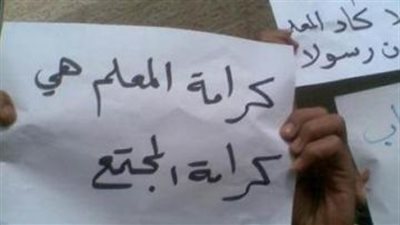 كرامة المعلم هي
كرامة المجتمع
كاد المعلم
ن رسولا